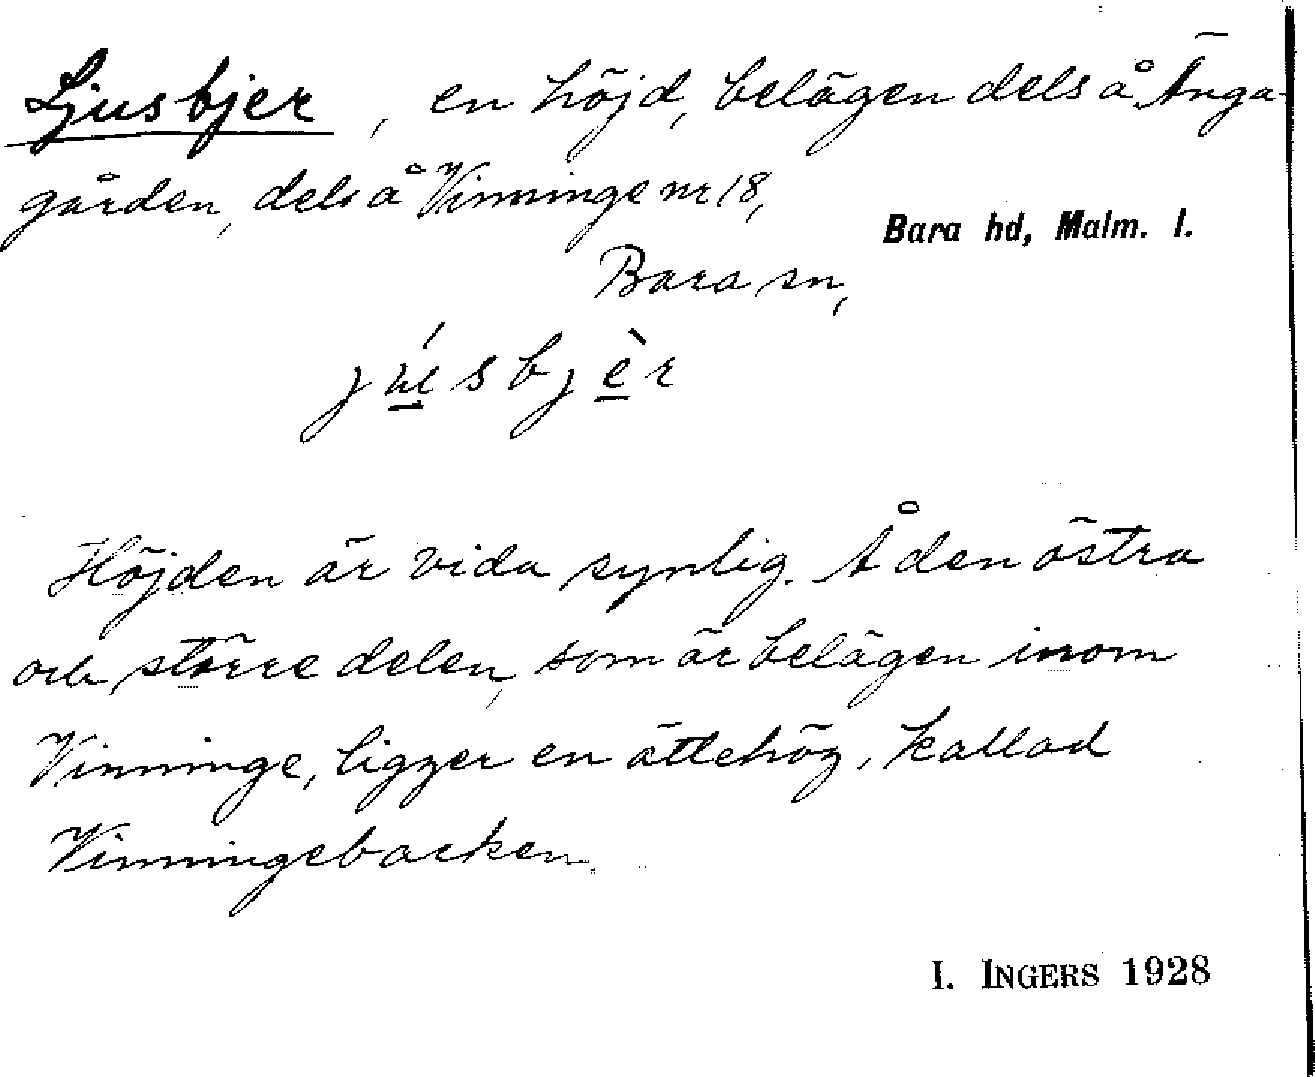 Ljusbjer, en höjd, belägen dels å Änga-
gården, dels å Vinninge nr 18,
Bara hd, Malm. l.
Bara sn,
júsbjèr
Höjden är vida synlig. Å den östra
och större delen, som är belägen inom
Vinninge, ligger en ättehög, kallad
Vinningebacken.
I. INGERS 1928